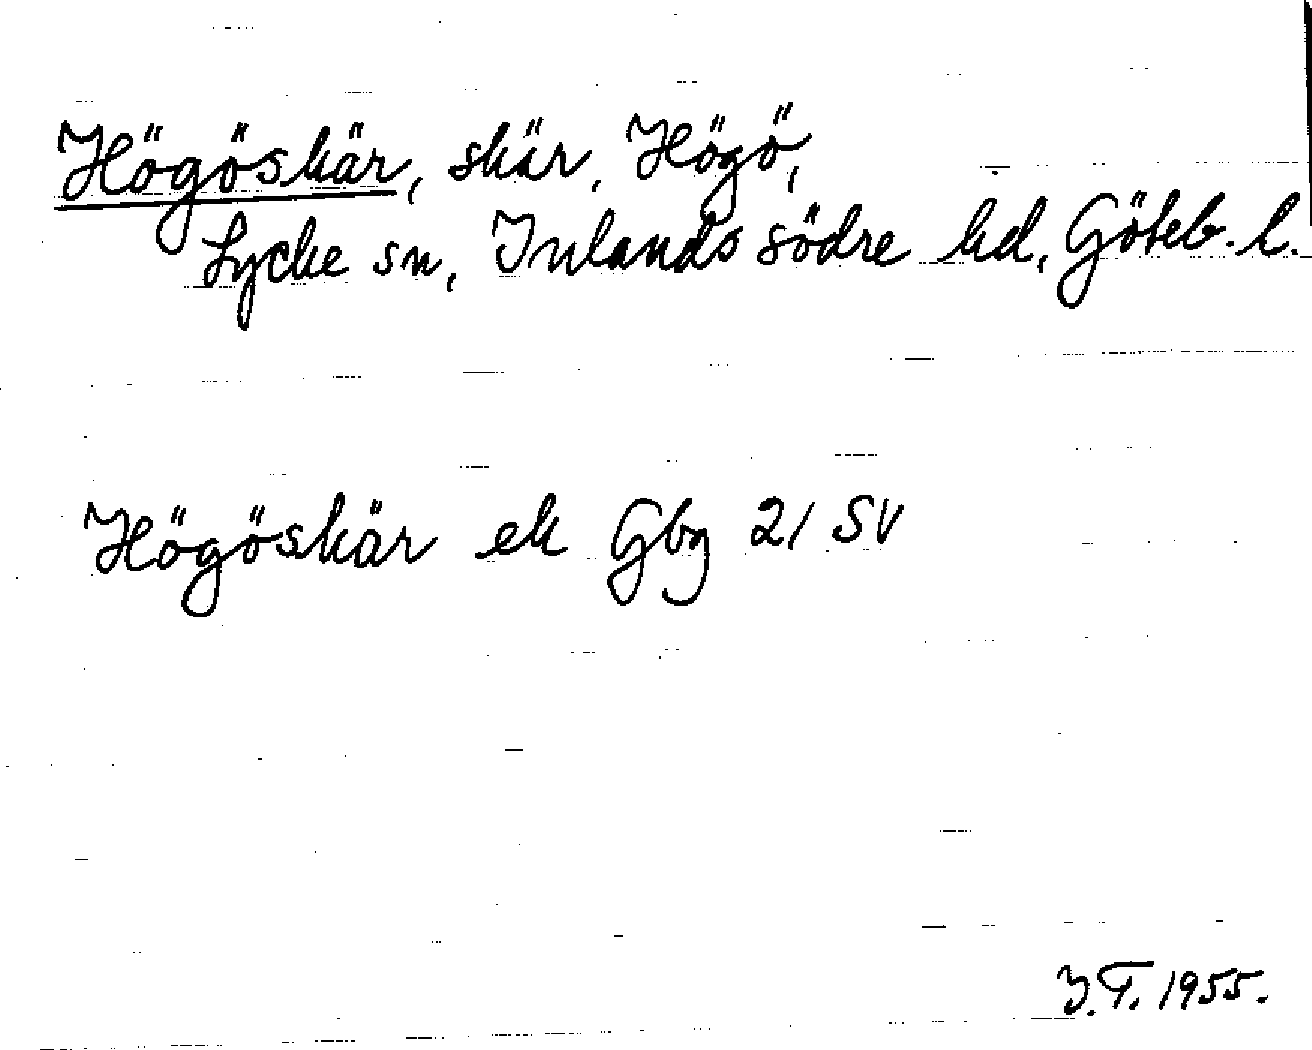 Högöskär, skär, Högö,
Lycke sn, Inlands södre hd, Göteb. l.
Högöskär ek Gbg 21 SV
I.T. 1955.